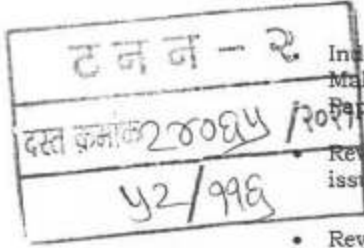 ट न न - २
दस्त क्रमांक २४०६५ /२०२१
५२/११६
Ind
Ma
• Rev
issu
• Rev